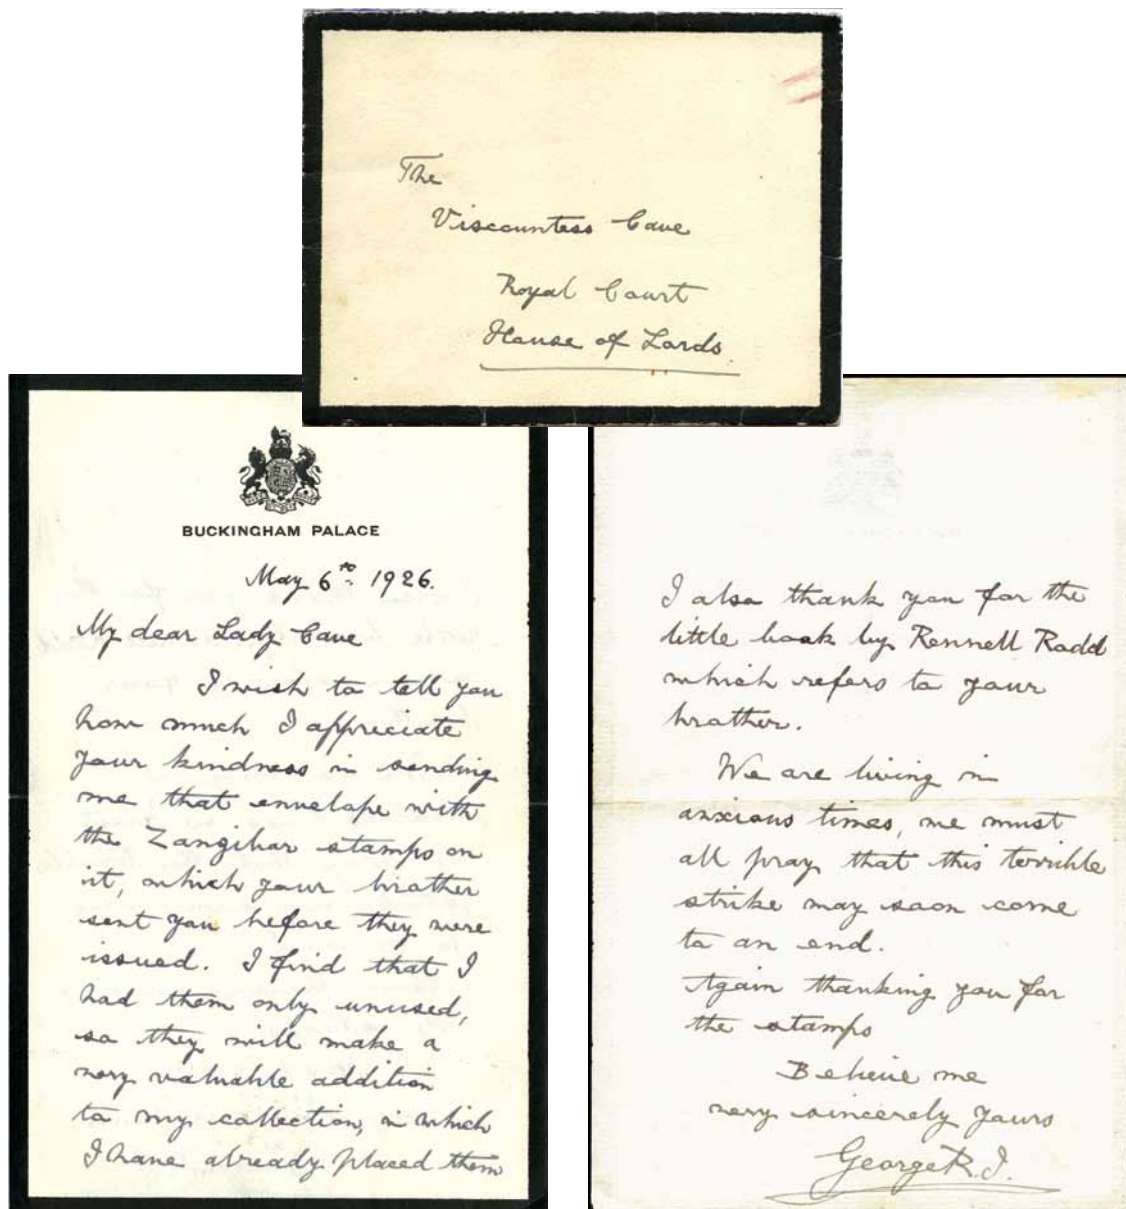 The
Viscountess Cave
Royal Court
House of Lords.
BUCKINGHAM PALACE
May 6th 1926.
My dear Lady Cave
I wish to tell you
how much I appreciate
your kindness in sending
me that envelope with
the Zanzibar stamps on
it, which your brother
sent you before they were
issued. I find that I
had them only unused,
so they will make a
very valuable addition
to my collection, in which
I have already placed them
I also thank you for the
little book by Rennell Rodd
which refers to your
brother.
We are living in
anxious times, we must
all pray that this terrible
strike may soon come
to an end.
Again thanking you for
the stamps
Believe me
very sincerely yours
George R.I.